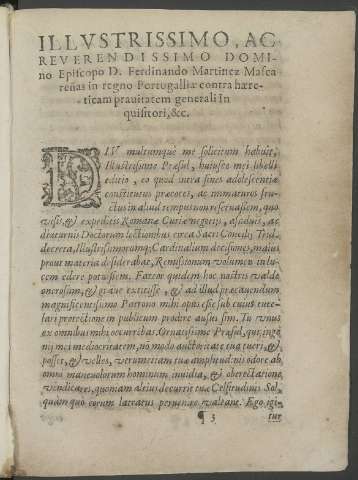 ILLVSTRISSIMO, AC
REVERENDISSIMO DOMI-
no Episcopo D. Ferdinando Martinez Masca
reñas in regno Portugalliæ contra hære-
ticam prauitatem generali In
quisitori, &c.
DIV multumque me solicitum habuit,
Illustrissime Præsul, huiusce mei libelli
editio, eo quod intra fines adolescentiæ
constitutus præcoces, ac immaturos fru-
ctus in aliud tempus non reseruassem, quo
visis, & expeditis Romanæ Curiæ negotijs, assiduis, ac
diuturnis Doctorum lectionibus circa Sacri Concilij Trid.
decreta, Illustrissimorumq; Cardinalium decisiones, maius
prout materia desiderabat, Remissionum volumen in lu-
cem edere potuissem. Fateor quidem hoc nostris valde
onerosum, & graue extitisse, & ad illud præcauendum
magnificentissimo Patrono mihi opus esse sub cuius tute-
lari protectione in publicum prodire ausus sim. Tu vnus
ex omnibus mihi occurrebas Ornatissime Præsul, qui inge
nij mei mediocritatem, nõ modo auctoritate tua tueri, &
posses, & velles, verum etiam tuæ amplitudinis odore ab
omni maleuolorum hominum inuidia, & obtrectatione
vendicares, quoniam altius decurrit tuæ Celsitudinis Sol,
quàm quo eorum latratus peruenire valeant. Ego igi-
¶ 3 tur